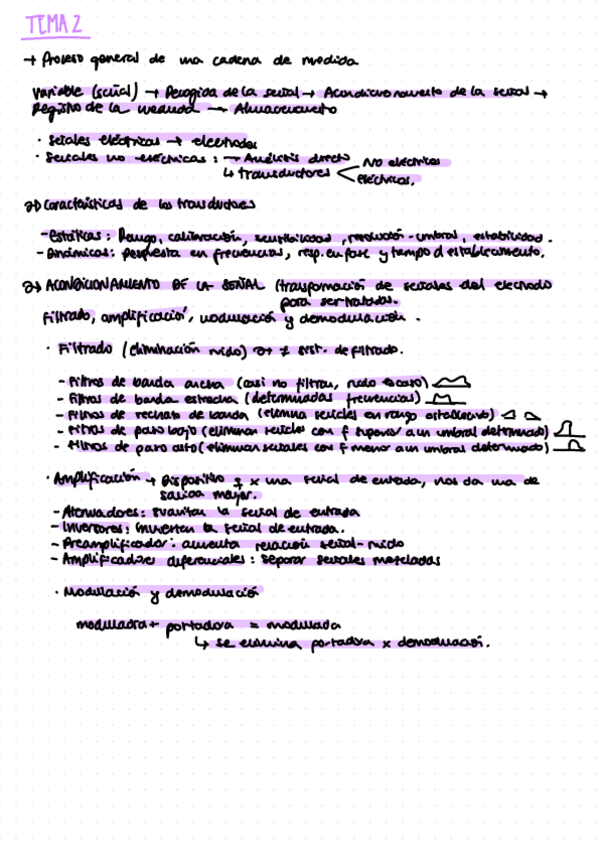 TEMA 2
→ Proceso general de una cadena de medida
Variable (señal) → Recogida de la señal → Acondicionamiento de la señal →
Registro de la medida → Almacenamiento
· Señales eléctricas → electrodos
· Señales no eléctricas : → Análisis directo
↳ transductores < No eléctricos
eléctricos.
→ Características de los transductores
- Estáticas : Rango, calibración, sensibilidad, resolución-umbral, estabilidad.
- Dinámicas : Respuesta en frecuencias, resp. en fase y tiempo d establecimiento.
→ ACONDICIONAMIENTO DE LA SEÑAL (transformación de señales del electrodo
para ser tratadas.
Filtrado, amplificación, modulación y demodulación.
· Filtrado (eliminación ruido) → ≠ sist. de filtrado.
- Filtros de banda ancha (casi no filtran, ruido escaso)
- Filtros de banda estrecha (determinadas frecuencias)
- Filtros de rechazo de banda (elimina señales en rango establecido)
- Filtros de paso bajo (eliminan señales con f superior a un umbral determinado)
- Filtros de paso alto (eliminan señales con f menor a un umbral determinado)
· Amplificación → Dispositivo q x una señal de entrada, nos da una de
salida mayor.
- Atenuadores : suavizan la señal de entrada
- Inversores : invierten la señal de entrada.
- Preamplificador : aumenta relación señal-ruido
- Amplificadores diferenciales : separar señales mezcladas
· Modulación y demodulación
moduladora + portadora = modulada
↳ se elimina portadora x demodulación.